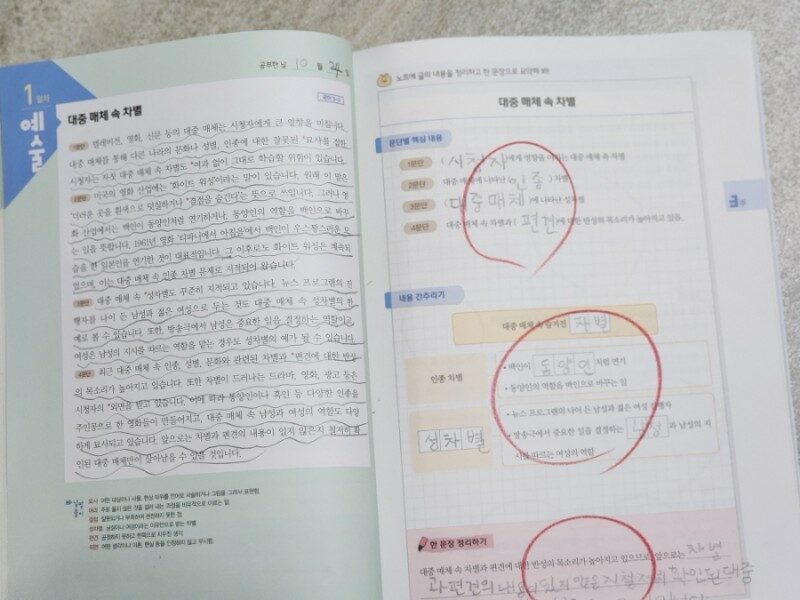 1일차
예술
공부한 날 10월 24일
대중 매체 속 차별
1문단 텔레비전, 영화, 신문 등의 대중 매체는 시청자에게 큰 영향을 미칩니다.
대중 매체를 통해 다른 나라의 문화나 성별, 인종에 대한 잘못된 *묘사를 접한
시청자는 자칫 대중 매체 속 차별도 *여과 없이 그대로 학습할 위험이 있습니다.
2문단 미국의 영화 산업에는 '화이트 워싱'이라는 말이 있습니다. 원래 이 말은
'더러운 곳을 흰색으로 덧칠하거나 *결점을 숨긴다'는 뜻으로 쓰입니다. 그러나 영
화 산업에서는 백인이 동양인처럼 연기하거나, 동양인의 역할을 백인으로 바꾸
는 일을 뜻합니다. 1961년 영화 「티파니에서 아침을」에서 백인이 우스꽝스러운 모
습을 한 일본인을 연기한 것이 대표적입니다. 그 이후로도 화이트 워싱은 계속되
었으며, 이는 대중 매체 속 인종 차별 문제로 지적되어 왔습니다.
3문단 대중 매체 속 *성차별도 꾸준히 지적되고 있습니다. 뉴스 프로그램의 진
행자를 나이 든 남성과 젊은 여성으로 두는 것도 대중 매체 속 성차별의 한
예로 볼 수 있습니다. 또한, 방송극에서 남성은 중요한 일을 결정하는 역할이고
여성은 남성의 지시를 따르는 역할을 맡는 경우도 성차별의 예가 될 수 있습니다.
4문단 최근 대중 매체 속 인종, 성별, 문화와 관련된 차별과 *편견에 대한 반성
의 목소리가 높아지고 있습니다. 또한 차별이 드러나는 드라마, 영화, 광고 등은
시청자의 *외면을 받고 있습니다. 이에 따라 동양인이나 흑인 등 다양한 인종을
주인공으로 한 영화들이 만들어지고, 대중 매체 속 남성과 여성의 역할도 다양
하게 묘사되고 있습니다. 앞으로는 차별과 편견의 내용이 있지 않은지 철저히 확
인된 대중 매체만이 살아남을 수 있을 것입니다.
낱말 풀이
묘사 어떤 대상이나 사물, 현상 따위를 언어로 서술하거나 그림을 그려서 표현함.
여과 주로 옳지 않은 것을 걸러 내는 과정을 비유적으로 이르는 말.
결점 잘못되거나 부족하여 완전하지 못한 점.
성차별 남성이나 여성이라는 이유만으로 받는 차별.
편견 공정하지 못하고 한쪽으로 치우친 생각.
외면 어떤 생각이나 이론, 현상 등을 인정하지 않고 무시함.
노트에 글의 내용을 정리하고 한 문장으로 요약해 봐!
대중 매체 속 차별
문단별 핵심 내용
1문단 (시청자)에게 영향을 미치는 대중 매체 속 차별
2문단 대중 매체에 나타난 (인종) 차별
3문단 (대중매체)에 나타난 성차별
4문단 대중 매체 속 차별과 (편견)에 대한 반성의 목소리가 높아지고 있음.
주
내용 간추리기
대중 매체 속 차별
인종 차별
• 백인이 동양인처럼 연기
• 동양인의 역할을 백인으로 바꾸는 일
성차별
• 뉴스 프로그램의 나이 든 남성과 젊은 여성 진행자
• 방송극에서 중요한 일을 결정하는 남성과 남성의 지
시를 따르는 여성의 역할
한 문장 정리하기
대중 매체 속 차별과 편견에 대한 반성의 목소리가 높아지고 있으므로 앞으로는 차별
과 편견의 내용이 있지 않은지 철저히 확인된 대중